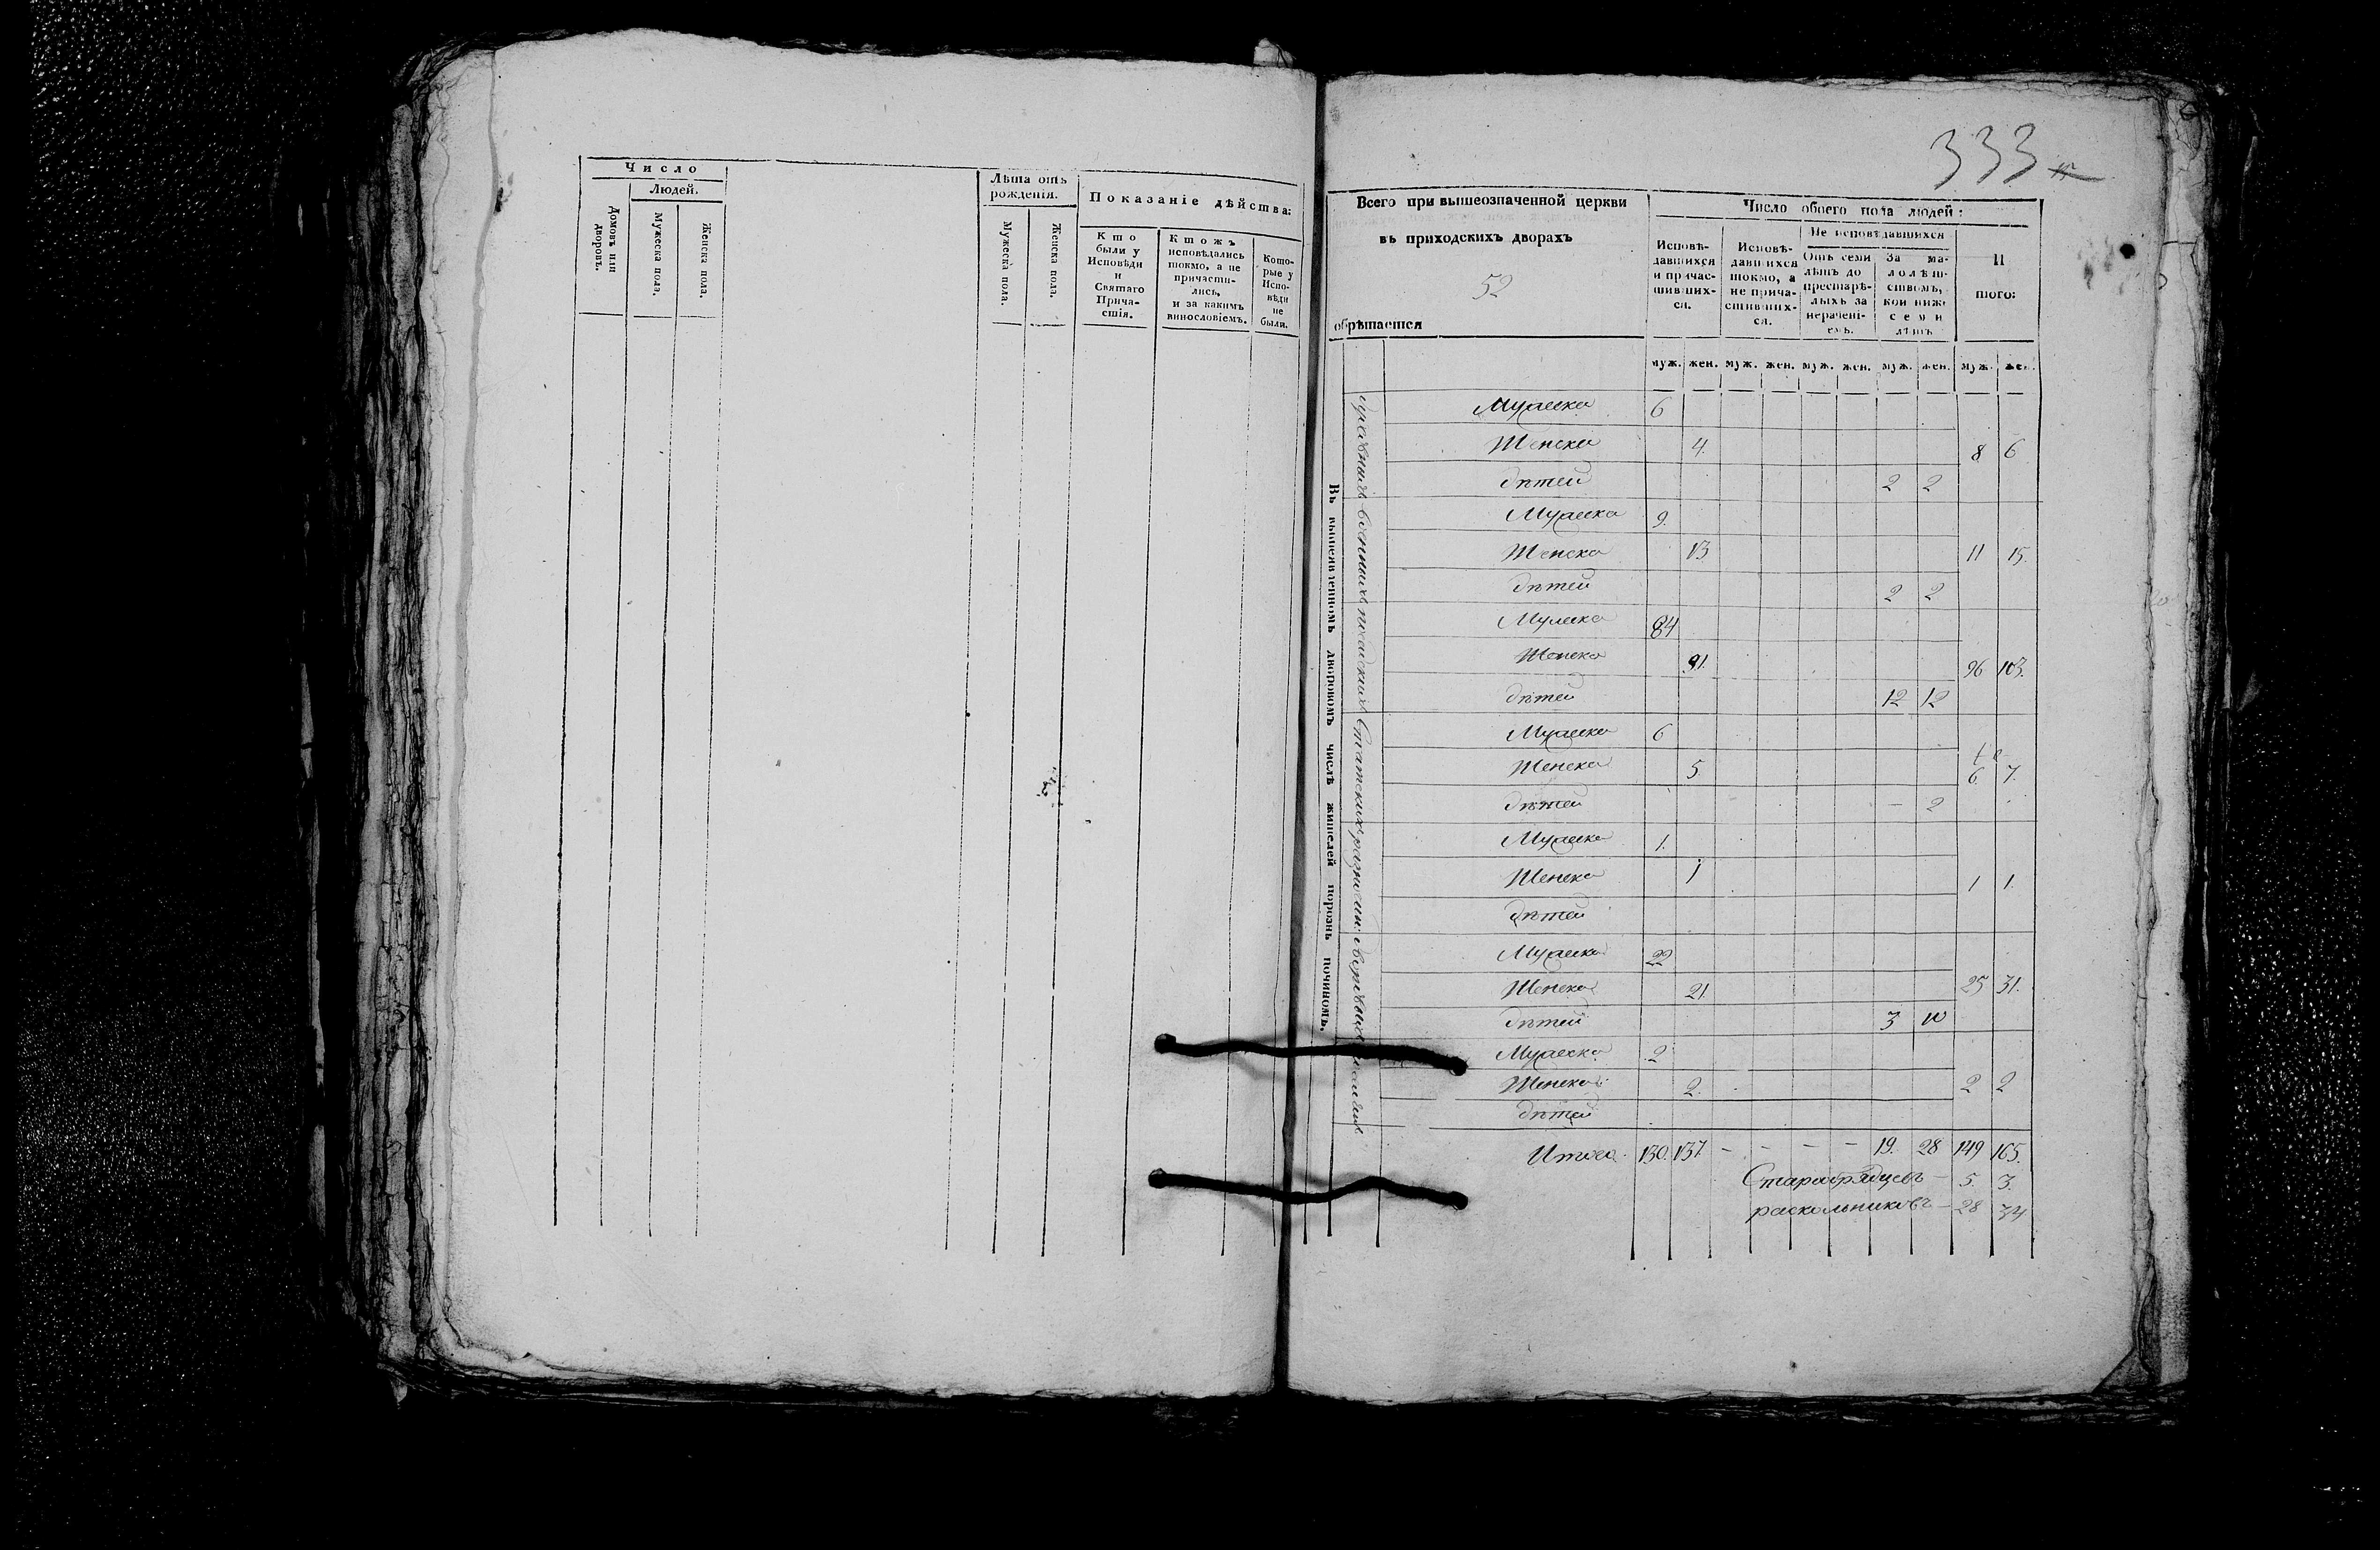 Число
Людей.
Домовъ или дворовъ.
Мужеска пола.
Женска пола.
Лѣта отъ рожденія.
Мужеска пола.
Женска пола.
Показаніе дѣйства:
Кто были у Исповѣди и Святаго Причастія.
Ктожъ исповѣдались токмо, а не причастились, и за какимъ винословіемъ.
Которые у Исповѣди не были.
333
Всего при вышеозначенной церкви
въ приходскихъ дворахъ
52
обрѣтается
Число обоего пола людей:
Исповѣдавшихся и причастившихся.
Исповѣдавшихся токмо, а не причастившихся.
Не исповѣдавшихся
Отъ семи лѣтъ до престарѣлыхъ за нераченіемъ.
За малолѣтствомъ, кои ниже семи лѣтъ
Итого:
муж. жен. муж. жен. муж. жен. муж. жен. муж. жен.
Въ вышеявленномъ дворовомъ числѣ жителей порознь починомъ.
Духовныхъ Военныхъ Статскихъ
Мужеска 6
Женска 4. 8 6
дѣтей 2 2
Мужеска 9.
Женска 13 11 15.
дѣтей 2 2
Мужеска 84
Женска 91. 96 103.
дѣтей 12 12
Мужеска 6
Женска 5 6 7.
дѣтей – 2
Мужеска 1.
Женска 1 1 1.
дѣтей
Мужеска 22
Женска 21. 25 31.
дѣтей 3 10
Мужеска 2
Женска 2. 2 2
дѣтей
Итого 130. 137 – – – – 19. 28 149 165.
Старобрядцовъ – 5. 3.
раскольниковъ – 28 34